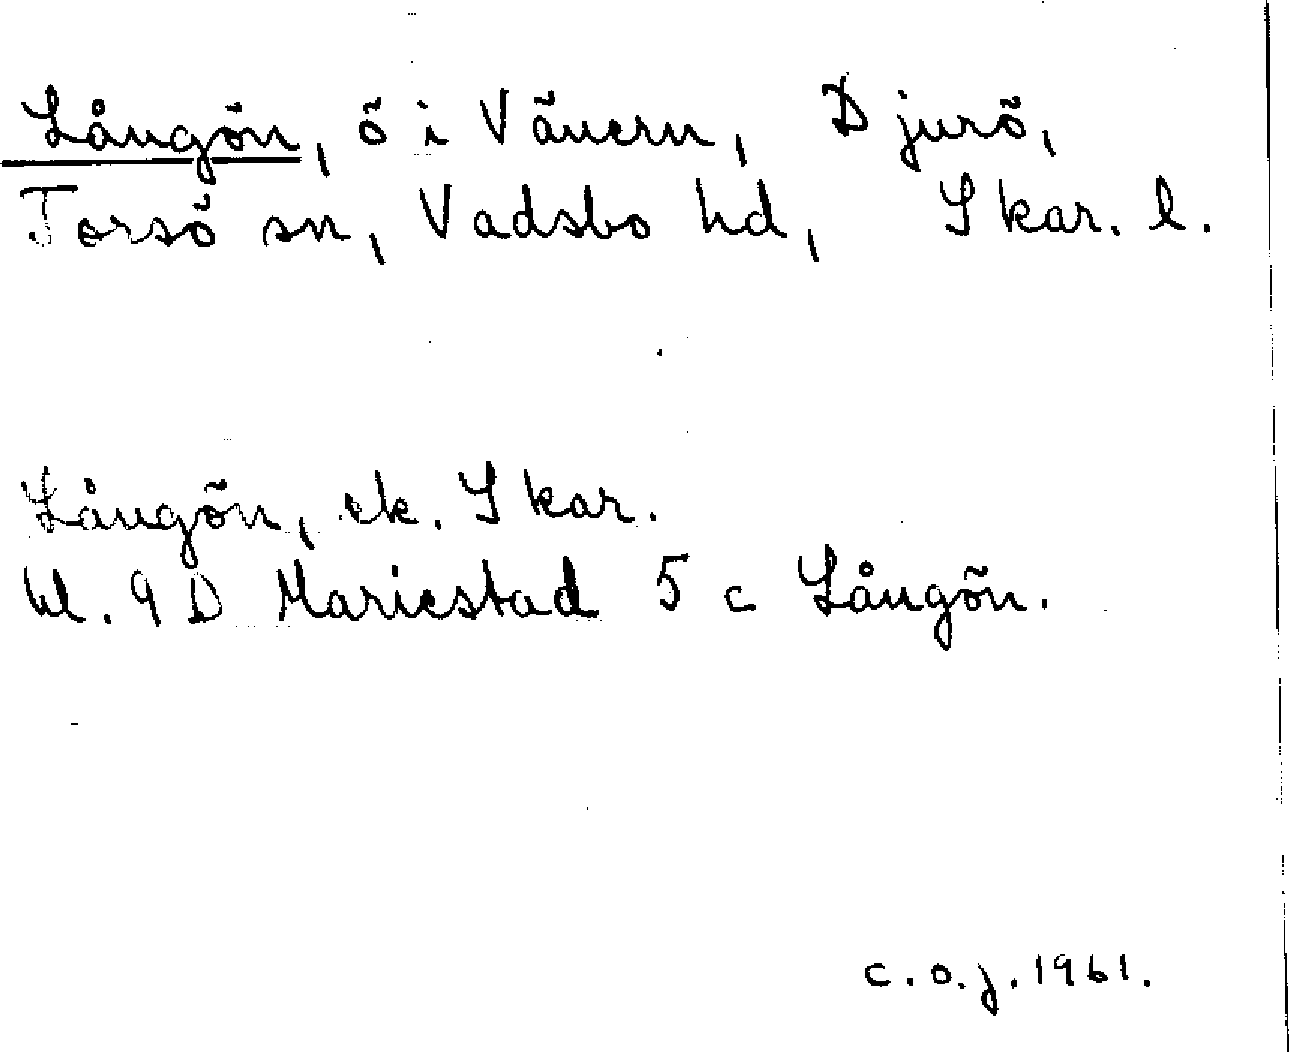 Långön, ö i Vänern, Djurö,
Torsö sn, Vadsbo hd, Skar. l.
Långön, ek. Skar.
bl. 9 D Mariestad 5 c Långön.
c.o.j. 1961.